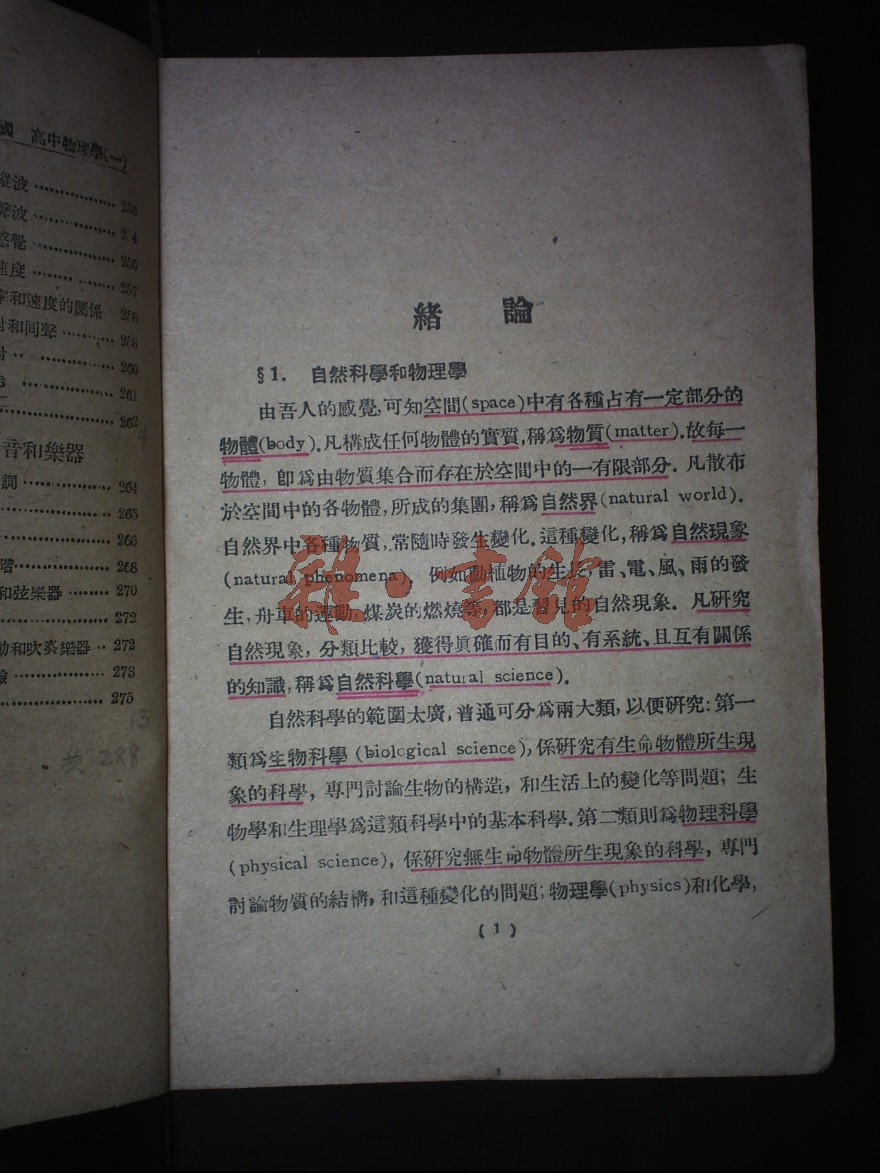 高中物理學(一)
縱波 253
254
感覺 256
速度 257
和速度的關係 258
和回聲 258
260
261
262
音和樂器
調 264
265
266
階 268
和弦樂器 270
272
動和吹奏樂器 272
273
275
13
共 288
緒 論
§1. 自然科學和物理學
由吾人的感覺,可知空間(space)中有各種占有一定部分的
物體(body).凡構成任何物體的實質,稱爲物質(matter).故每一
物體,卽爲由物質集合而存在於空間中的一有限部分.凡散布
於空間中的各物體,所成的集團,稱爲自然界(natural world).
自然界中各種物質,常隨時發生變化.這種變化,稱爲自然現象
(natural phenomena). 例如動植物的生長,雷、電、風、雨的發
生,舟車的運動,煤炭的燃燒等,都是習見的自然現象. 凡研究
自然現象,分類比較,獲得眞確而有目的、有系統、且互有關係
的知識,稱爲自然科學(natural science).
自然科學的範圍太廣,普通可分爲兩大類,以便研究:第一
類爲生物科學(biological science),係研究有生命物體所生現
象的科學,專門討論生物的構造,和生活上的變化等問題;生
物學和生理學爲這類科學中的基本科學.第二類則爲物理科學
(physical science),係研究無生命物體所生現象的科學,專門
討論物質的結構,和這種變化的問題;物理學(physics)和化學,
(1)
雜·書館